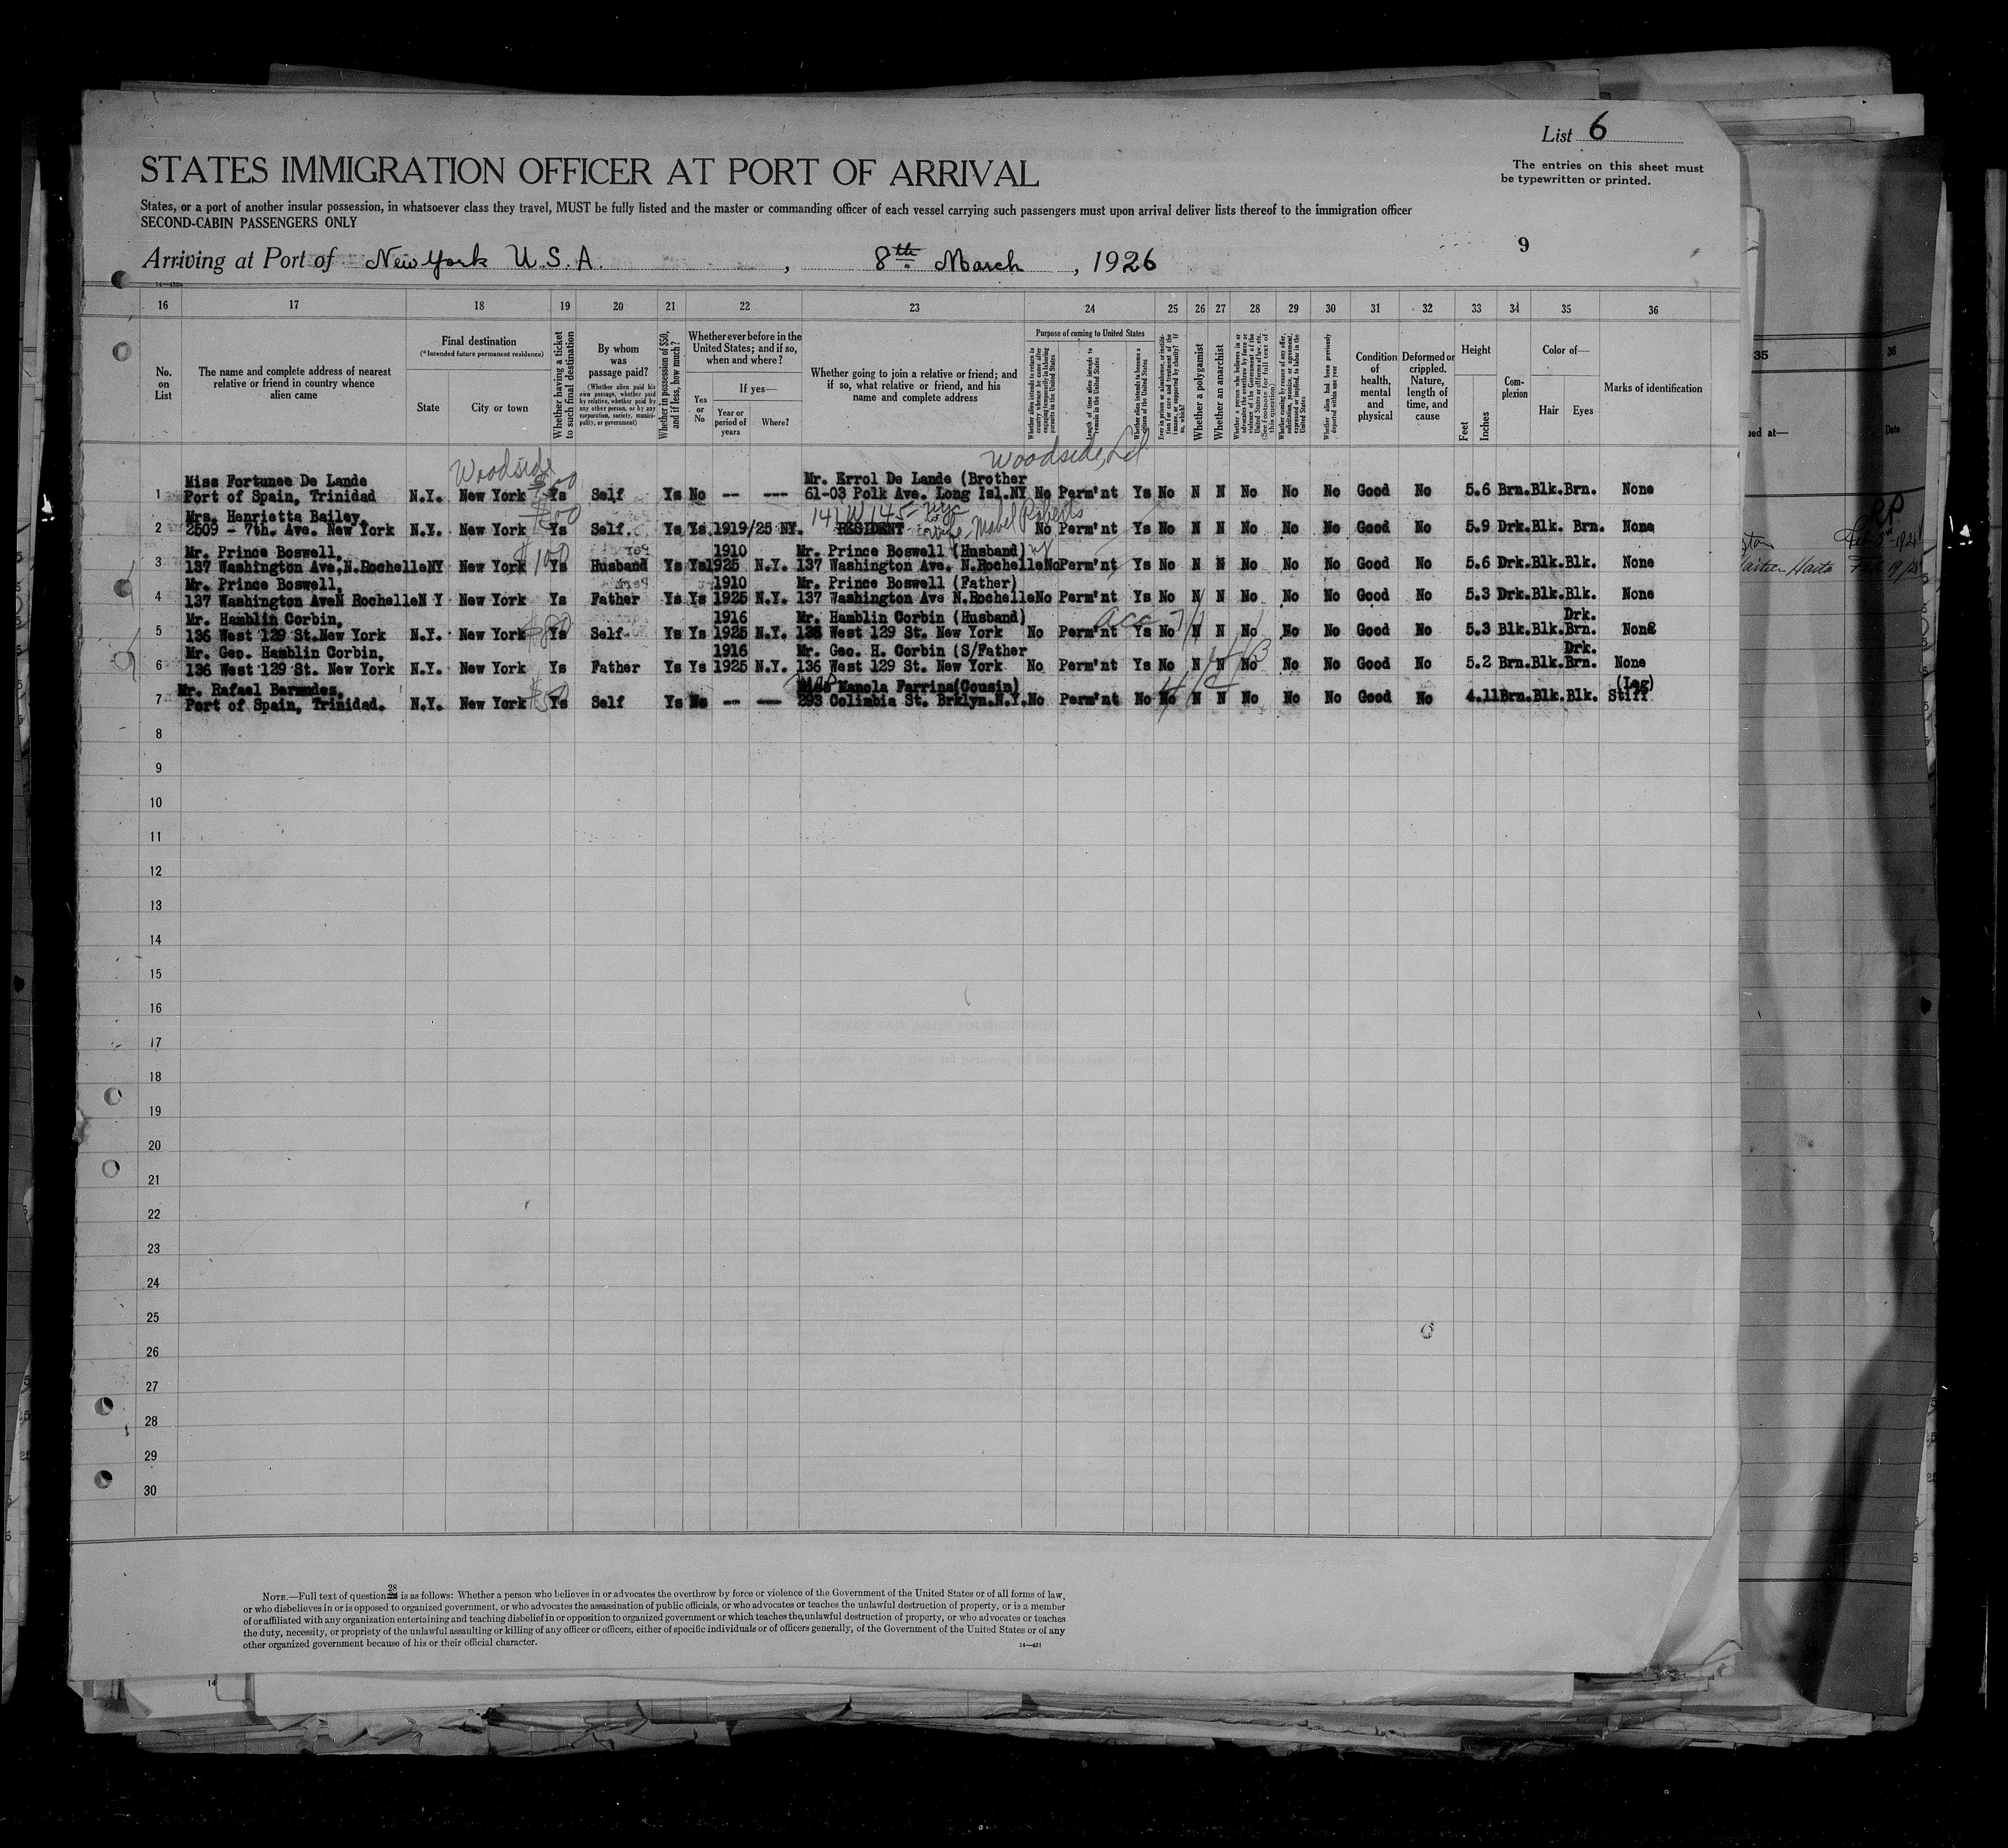 List 6
STATES IMMIGRATION OFFICER AT PORT OF ARRIVAL
The entries on this sheet must
be typewritten or printed.
States, or a port of another insular possession, in whatsoever class they travel, MUST be fully listed and the master or commanding officer of each vessel carrying such passengers must upon arrival deliver lists thereof to the immigration officer
SECOND-CABIN PASSENGERS ONLY
Arriving at Port of New York U.S.A. , 8th March , 1926
9
16 17 18 19 20 21 22 23 24 25 26 27 28 29 30 31 32 33 34 35 36
No. on List
The name and complete address of nearest relative or friend in country whence alien came
Final destination
(*Intended future permanent residence)
State
City or town
Whether having a ticket to such final destination
By whom was passage paid?
(Whether alien paid his own passage, whether paid by relative, whether paid by any other person, or by any corporation, society, municipality, or government)
Whether in possession of $50, and if less, how much?
Whether ever before in the United States; and if so, when and where?
Yes or No
If yes—
Year or period of years
Where?
Whether going to join a relative or friend; and if so, what relative or friend, and his name and complete address
Purpose of coming to United States
Whether alien intends to return to country whence he came after engaging temporarily in laboring pursuits in the United States
Length of time alien intends to remain in the United States
Whether alien intends to become a citizen of the United States
Whether a polygamist
Whether an anarchist
Whether alien had been previously deported within one year
Condition of health, mental and physical
Deformed or crippled. Nature, length of time, and cause
Height
Feet
Inches
Complexion
Color of—
Hair
Eyes
Marks of identification
Woodside
Woodside, L.I.
Miss Fortunee De Lande Mr. Errol De Lande (Brother
1 Port of Spain, Trinidad N.Y. New York Ys Self Ys No -- --- 61-03 Polk Ave. Long Isl.NY No Perm'nt Ys No N N No No No Good No 5.6 Brn.Blk.Brn. None
Mrs. Henrietta Bailey, 141 W 145 - nyc
2 2509 - 7th. Ave. New York N.Y. New York Ys Self. Ys Ys 1919/25 NY. RESIDENT Mabel Roberts No Perm'nt Ys No N N No No No Good No 5.9 Drk.Blk. Brn. None
Mr. Prince Boswell, $100 1910 Mr. Prince Boswell (Husband)
3 137 Washington Ave,N.RochelleNY New York Ys Husband Ys Ys1925 N.Y. 137 Washington Ave. N.RochelleNoPerm'nt Ys No N N No No No Good No 5.6 Drk.Blk.Blk. None
Mr. Prince Boswell, 1910 Mr. Prince Boswell (Father)
4 137 Washington AveN RochelleN Y New York Ys Father Ys Ys 1925 N.Y. 137 Washington Ave N.RochelleNo Perm'nt Ys No N N No No No Good No 5.3 Drk.Blk.Blk. None
Mr. Hamblin Corbin, 1916 Mr. Hamblin Corbin (Husband) Drk.
5 136 West 129 St.New York N.Y. New York Ys Self Ys Ys 1925 N.Y. 136 West 129 St. New York No Perm'nt Ys No N N No No No Good No 5.3 Blk.Blk.Brn. None
Mr. Geo. Hamblin Corbin, 1916 Mr. Geo. H. Corbin (S/Father Drk.
6 136 West 129 St. New York N.Y. New York Ys Father Ys Ys 1925 N.Y. 136 West 129 St. New York No Perm'nt Ys No N N No No No Good No 5.2 Brn.Blk.Brn. None
Mr. Rafael Bermudes, Manola Farrina(Cousin) (Leg)
7 Port of Spain, Trinidad. N.Y. New York Ys Self Ys No -- --- 293 Colimbia St. Brklyn.N.Y.No Perm'nt No No N N No No No Good No 4.11Brn.Blk.Blk. Stiff
8
9
10
11
12
13
14
15
16
17
18
19
20
21
22
23
24
25
26
27
28
29
30
NOTE.—Full text of question 28 is as follows: Whether a person who believes in or advocates the overthrow by force or violence of the Government of the United States or of all forms of law,
or who disbelieves in or is opposed to organized government, or who advocates the assassination of public officials, or who advocates or teaches the unlawful destruction of property, or is a member
of or affiliated with any organization entertaining and teaching disbelief in or opposition to organized government or which teaches the unlawful destruction of property, or who advocates or teaches
the duty, necessity, or propriety of the unlawful assaulting or killing of any officer or officers, either of specific individuals or of officers generally, of the Government of the United States or of any
other organized government because of his or their official character.
14—431